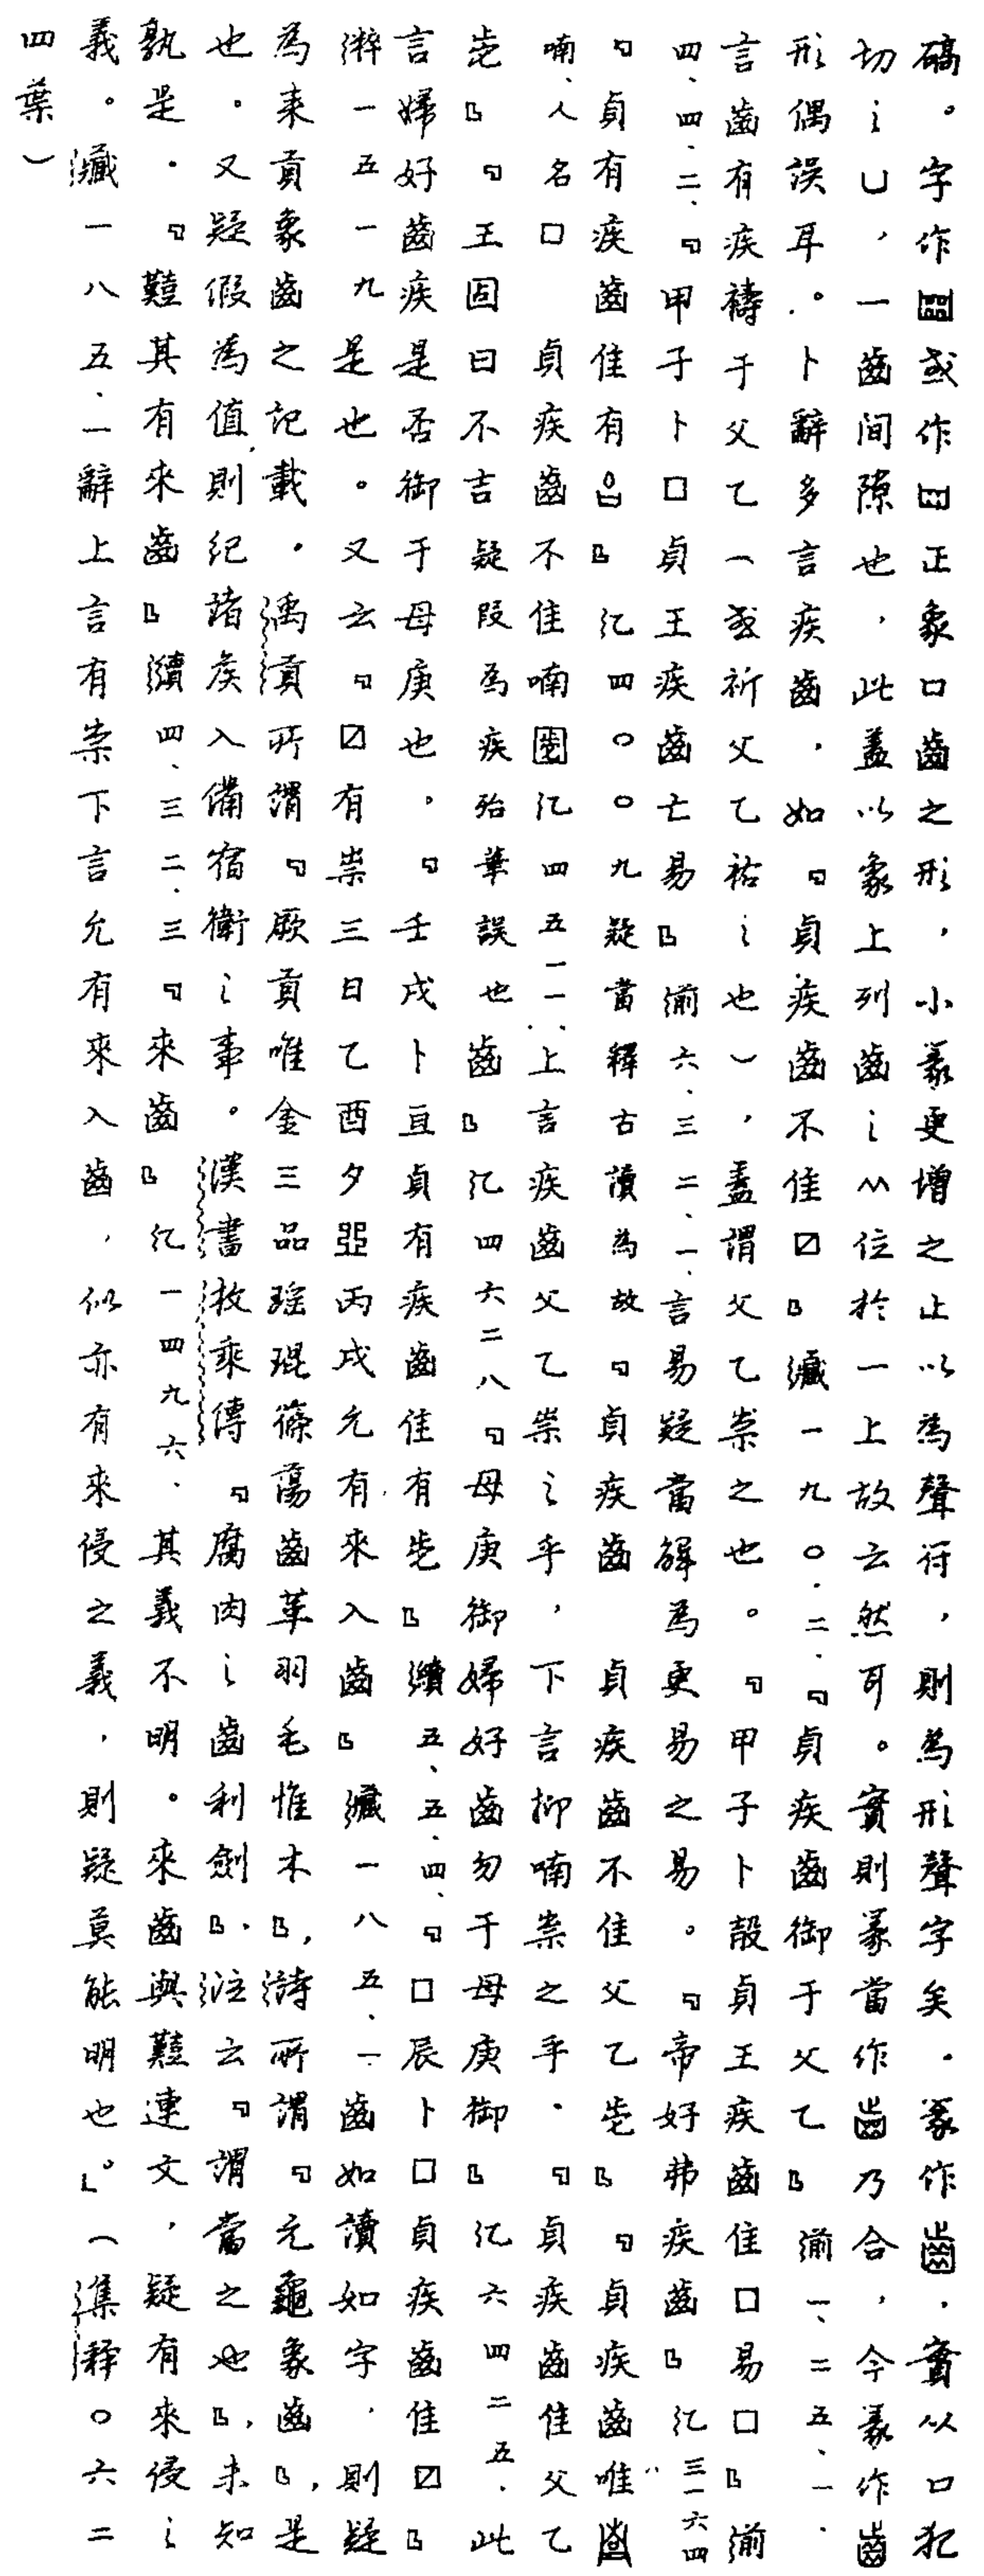 碻。字作或作正象口齒之形，小篆更增之止以為聲符，則為形聲字矣。篆作，實从口犯
切之凵，一齒間隙也，此蓋以象上列齒之𠈌位於一上故云然耳。實則篆當作乃合，今篆作
形偶誤耳。卜辭多言疾齒，如『貞疾齒不隹☑』藏一九〇·二、『貞疾齒御于父乙』前一、二五、一、
言齒有疾禱于父乙（或祈父乙祐之也），蓋謂父乙祟之也。『甲子卜㱿貞王疾齒隹□易□』前
四、四、二、『甲子卜□貞王疾齒亡易』前六、三二、一、言易疑當解為更易之易。『帝好弗疾齒』乙三一六四
『貞有疾齒隹有』乙四〇〇九疑當釋古讀為故『貞疾齒 貞疾齒不隹父乙』『貞疾齒唯
喃、人名□ 貞疾齒不隹喃乙四五一一、上言疾齒父乙祟之乎，下言抑喃祟之乎。『貞疾齒隹父乙
』『王固曰不吉疑段為疾殆筆誤也齒』乙四六二八『母庚御婦好齒勿于母庚御』乙六四二五、此
言婦好齒疾是否御于母庚也。『壬戌卜亘貞有疾齒隹有』續五、五、四、『□辰卜□貞疾齒隹☑』
一五一九是也。又云『☑有祟三日乙酉夕丙戌允有來入齒』藏一八五、一齒如讀如字，則疑
為來貢象齒之記載。禹貢所謂『厥貢唯金三品瑤琨篠蕩齒革羽毛惟木』，詩所謂『元龜象齒』，是
也。又疑假為值，則紀諸侯入備宿衛之事。漢書枚乘傳『腐肉之齒利劍』，注云『謂當之也』，未知
孰是。『囏其有來齒』續四、三二、三『來齒』乙一四九六、其義不明。來齒與囏連文，疑有來侵之
義。藏一八五、一辭上言有祟下言允有來入齒，似亦有來侵之義，則疑莫能明也。」（集釋〇六二
四葉）